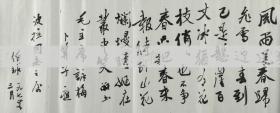 風雨送春歸
飛雪迎春到
已是懸崖百
丈冰猶有花
枝俏俏也不爭
春只把春來
報待到山花
爛漫時她在
叢中笑
毛主席詠梅
卜算子
同志
二月